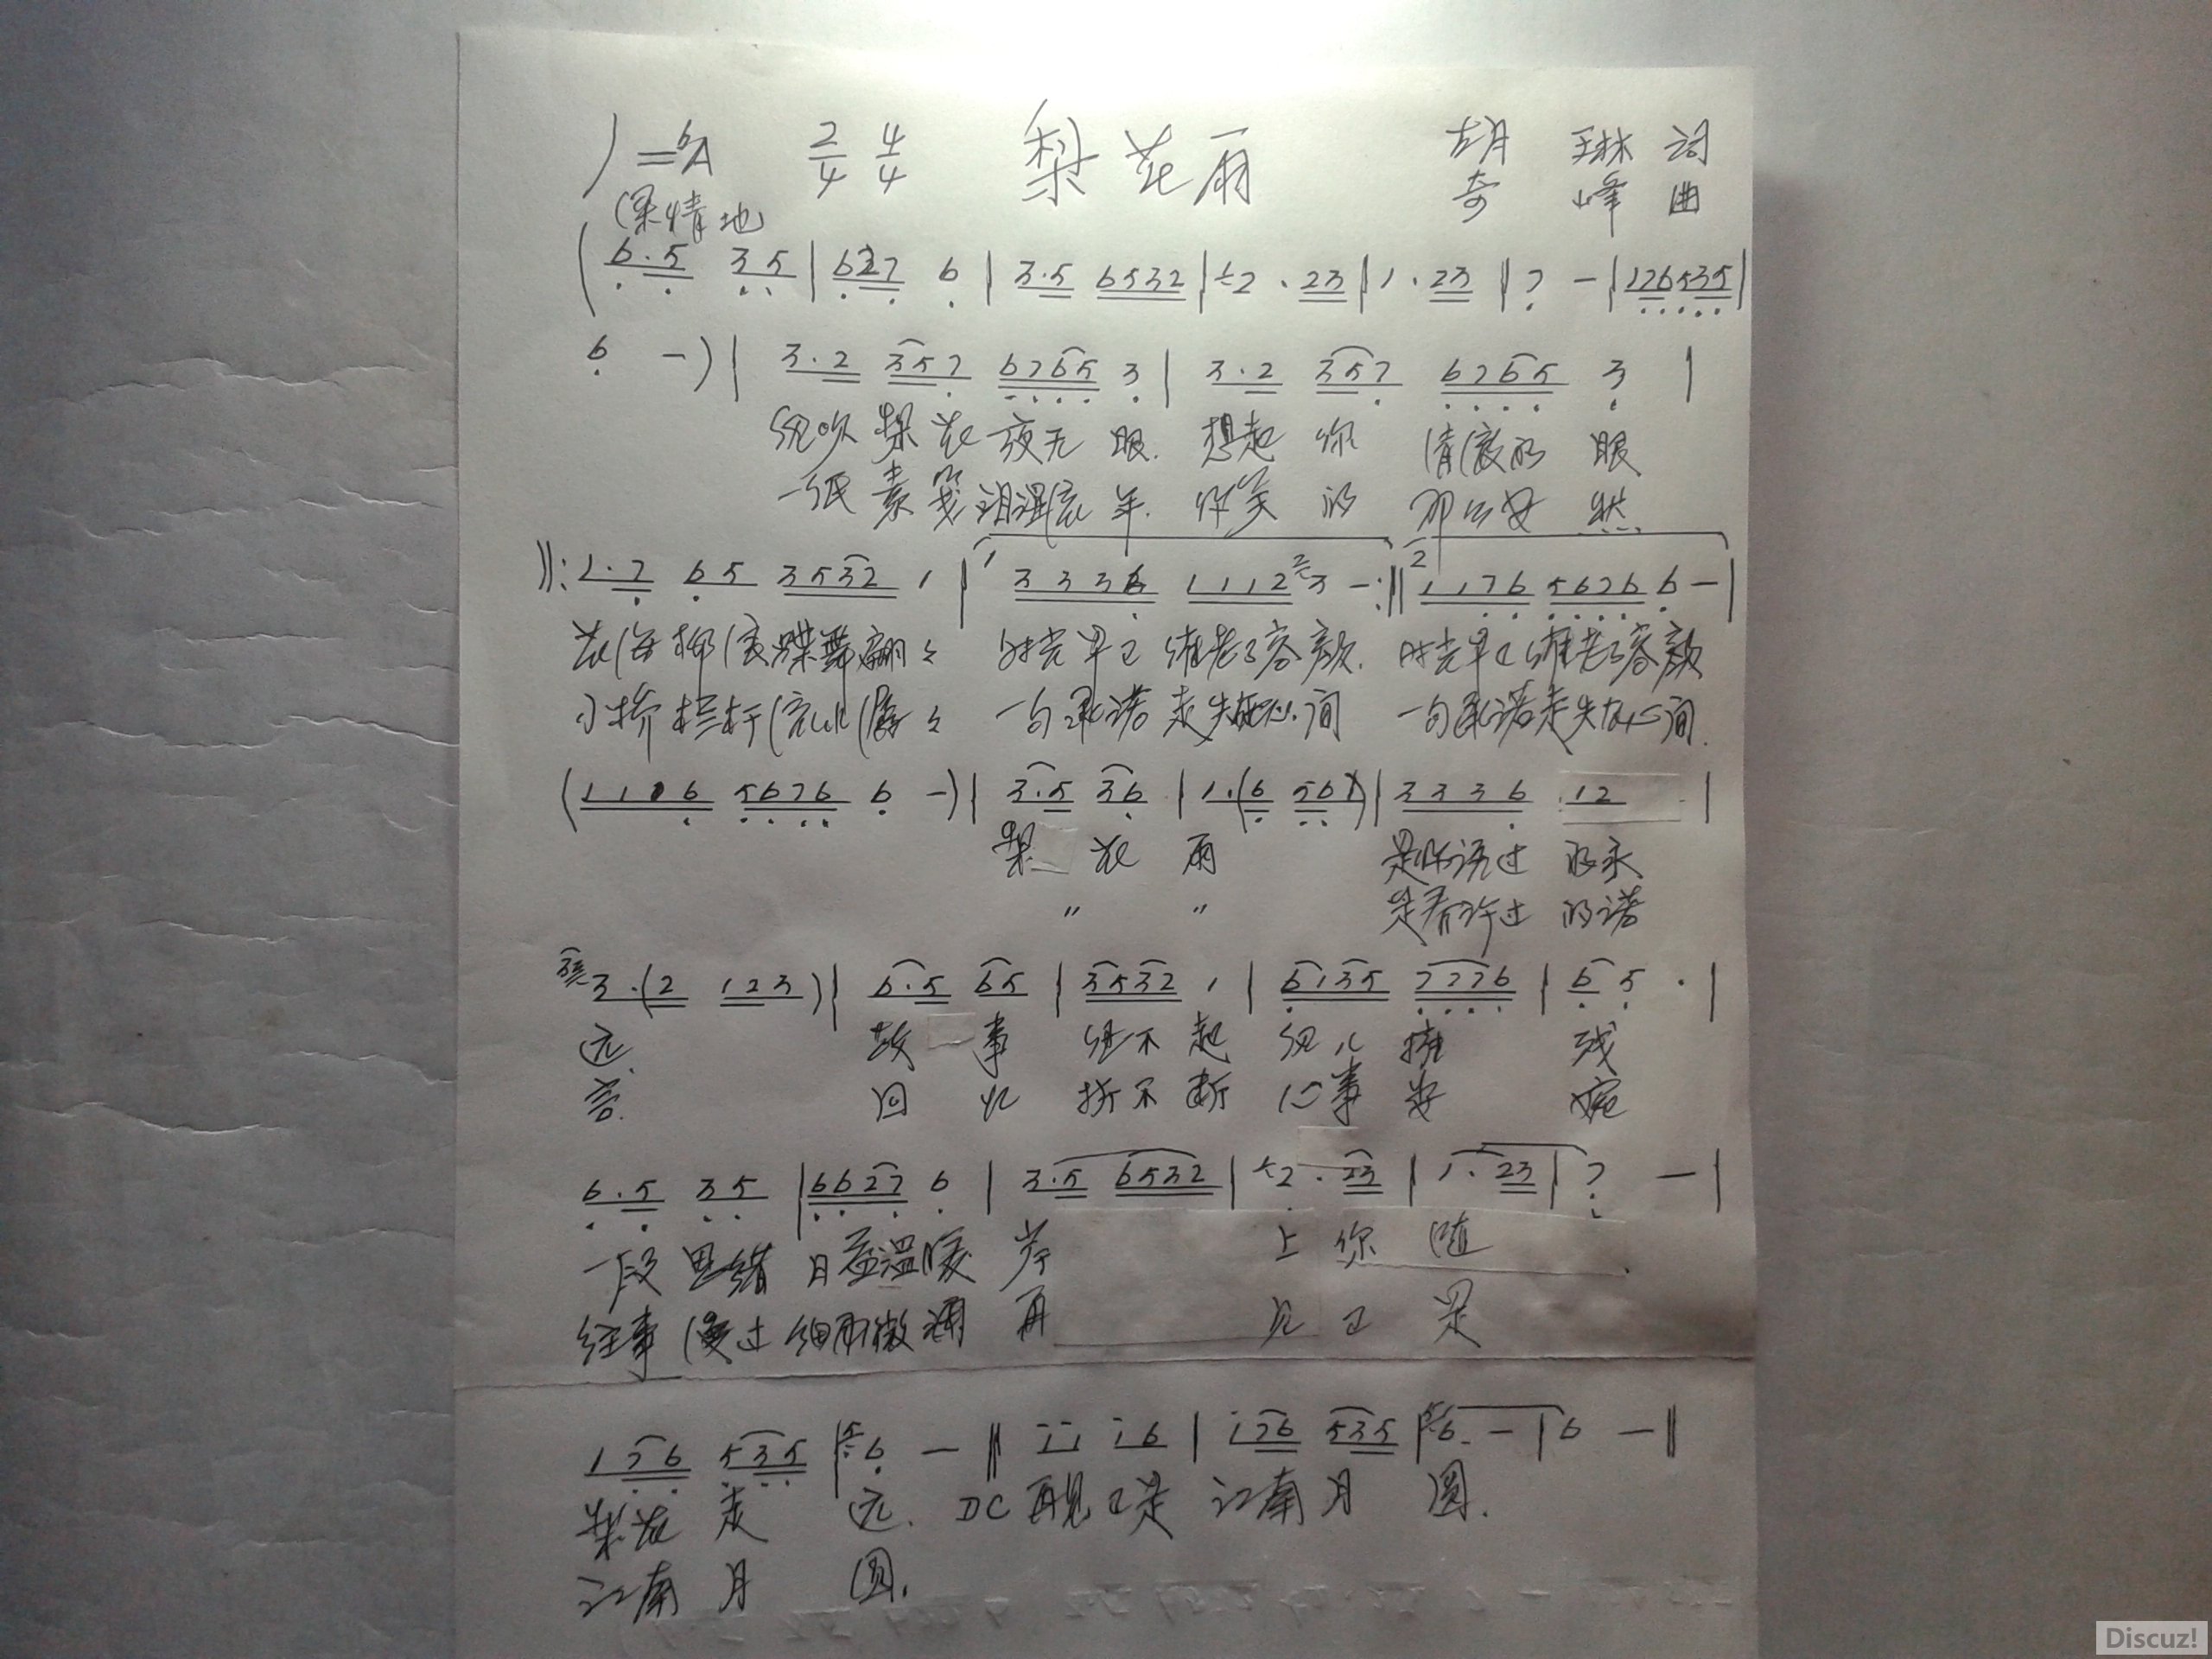 1=bA 2/4 4/4 梨花雨 胡琳 词
(深情地 奇峰 曲
(6.5 35|627 6|3.5 6532|2.23|1.23|7 -|126535|
6 -)|3.2 357 6765 3|3.2 357 6765 3|
细吹梨花夜无眠. 想起你 清澈的眼
一纸素笺泪湿流年. 你笑的 那么安然
||:1.7 65 3532 1|1 3336 1112 3 -:||2 1176 5676 6 -|
花海柳浪蝶舞翩々 时光早已 谁老了容颜. 时光早已谁老了容颜
小桥栏杆流水潺々 一句承诺 走失在心间 一句承诺走失在心间.
(1106 5676 6 -)|3.5 36|1.(6 567)|3336 12|
梨花雨 是你说过 的永
" " 是看许过 的诺
3.(2 123)|6.5 65|3532 1|6135 7776|6 5 .|
远. 故事 经不起 残
言. 回忆 折不断 心事 婉
6.5 35|6627 6|3.5 6532|2.23|1.23|7 -|
一段思绪 日益温暖 岸 上你随
往事漫过 细雨微澜 再 见已是
176 535|6 -||11 16|176 535|6 -|6 -||
梨花走 远. DC 再见已是 江南月 圆.
江南月 圆.
Discuz!